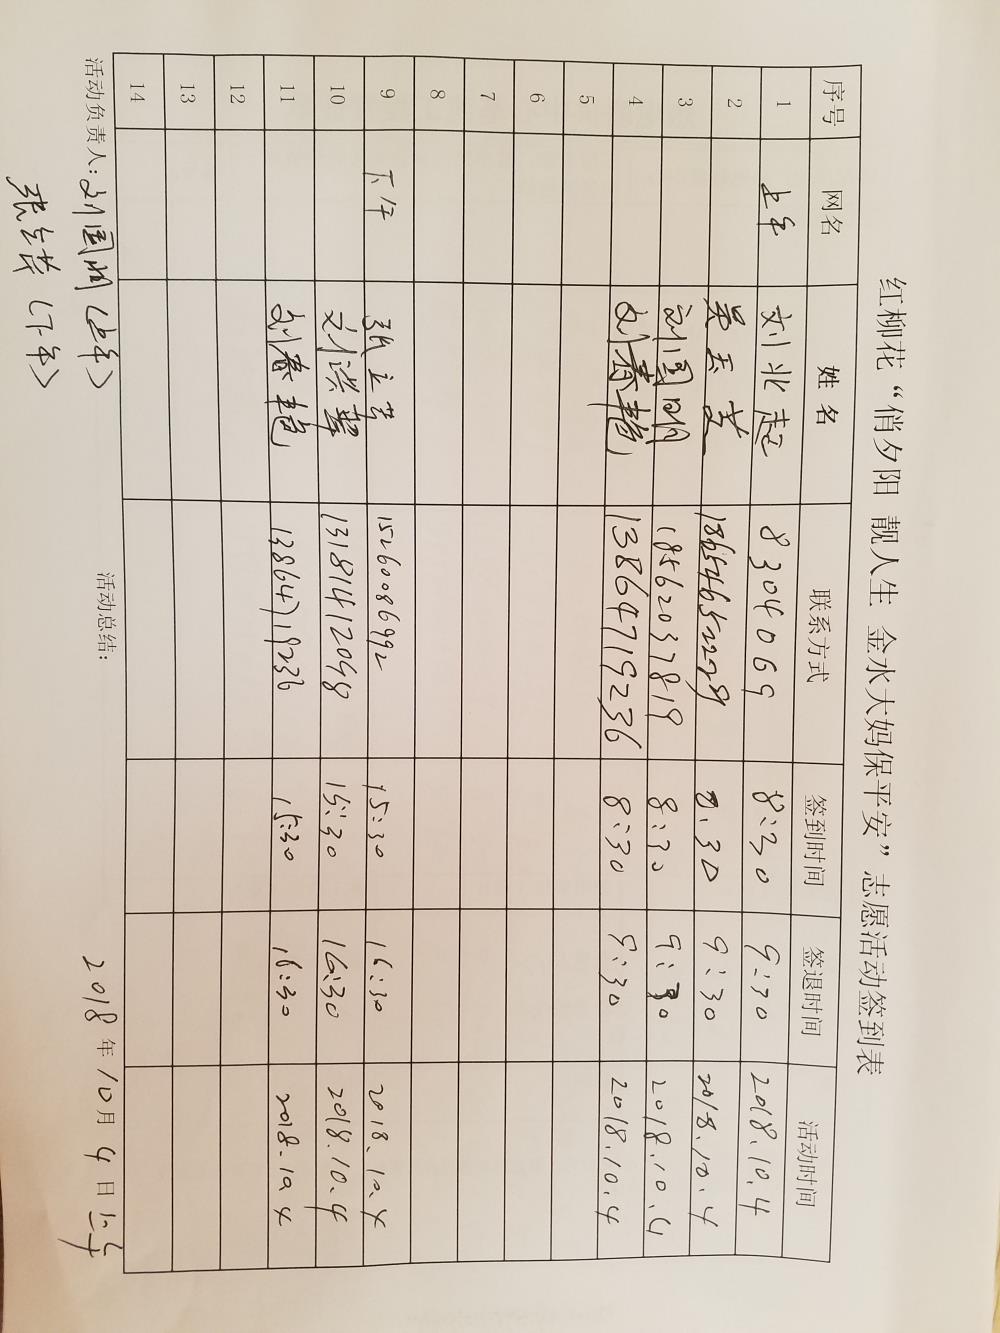 红柳花“俏夕阳 靓人生 金水大妈保平安”志愿活动签到表
序号 网名 姓名 联系方式 签到时间 签退时间 活动时间
1 上午 刘北起 8304069 8:30 9:30 2018.10.4
2 吴玉芝 8:30 9:30 2018.10.4
3 刘国明 18562037819 8:30 9:30 2018.10.4
4 刘春艳 13864719236 8:30 9:30 2018.10.4
5
6
7
8
9 下午 15260086992 15:30 16:30 2018.10.4
10 刘洪 13181412048 15:30 16:30 2018.10.4
11 刘春艳 13864719236 15:30 16:30 2018.10.4
12
13
14
活动负责人:刘国明(上午) 活动总结: 2018年10月4日上午
(下午)